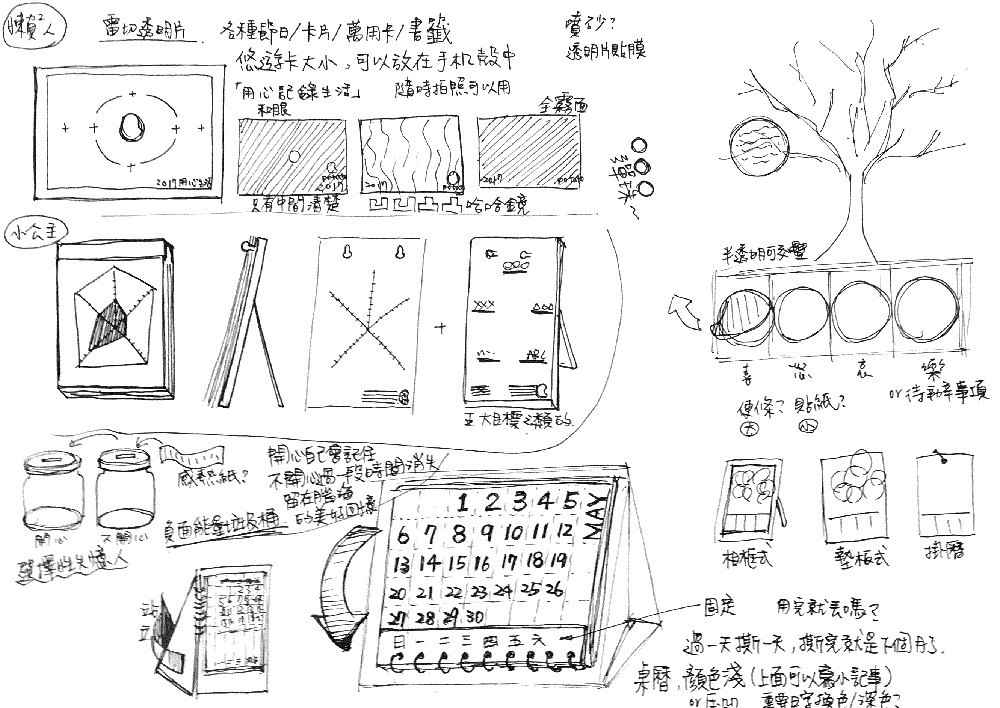 懶人
雷切透明片 各種節日/卡片/萬用卡/書籤
悠遊卡大小,可以放在手机殼中
「用心記錄生活」 隨時拍照可以用
噴砂?
透明片貼膜
和眼
全霧面
2017用心生活
2017
potato
2017
2017
potato
只有中間清楚
哈哈鏡
彈珠?
小公主
+
XXX
ABC
五大目標之類的
半透明可交疊
喜
怒
哀
樂
or 待辦事項
便條? 貼紙?
大 小
相框式
墊板式
掛曆
感熱紙?
開心
不開心
選擇性失憶人
開心自己會記住
不開心過一段時間消失
留在腦海
的美好回憶
負面能量垃圾桶
站立
MAY
1 2 3 4 5
6 7 8 9 10 11 12
13 14 15 16 17 18 19
20 21 22 23 24 25 26
27 28 29 30
日 一 二 三 四 五 六
固定 用完就丟嗎?
過一天撕一天,撕完就是下個月了.
桌曆,顏色淺(上面可以寫小記事)
or 壓凹 重要日字換色/深色?